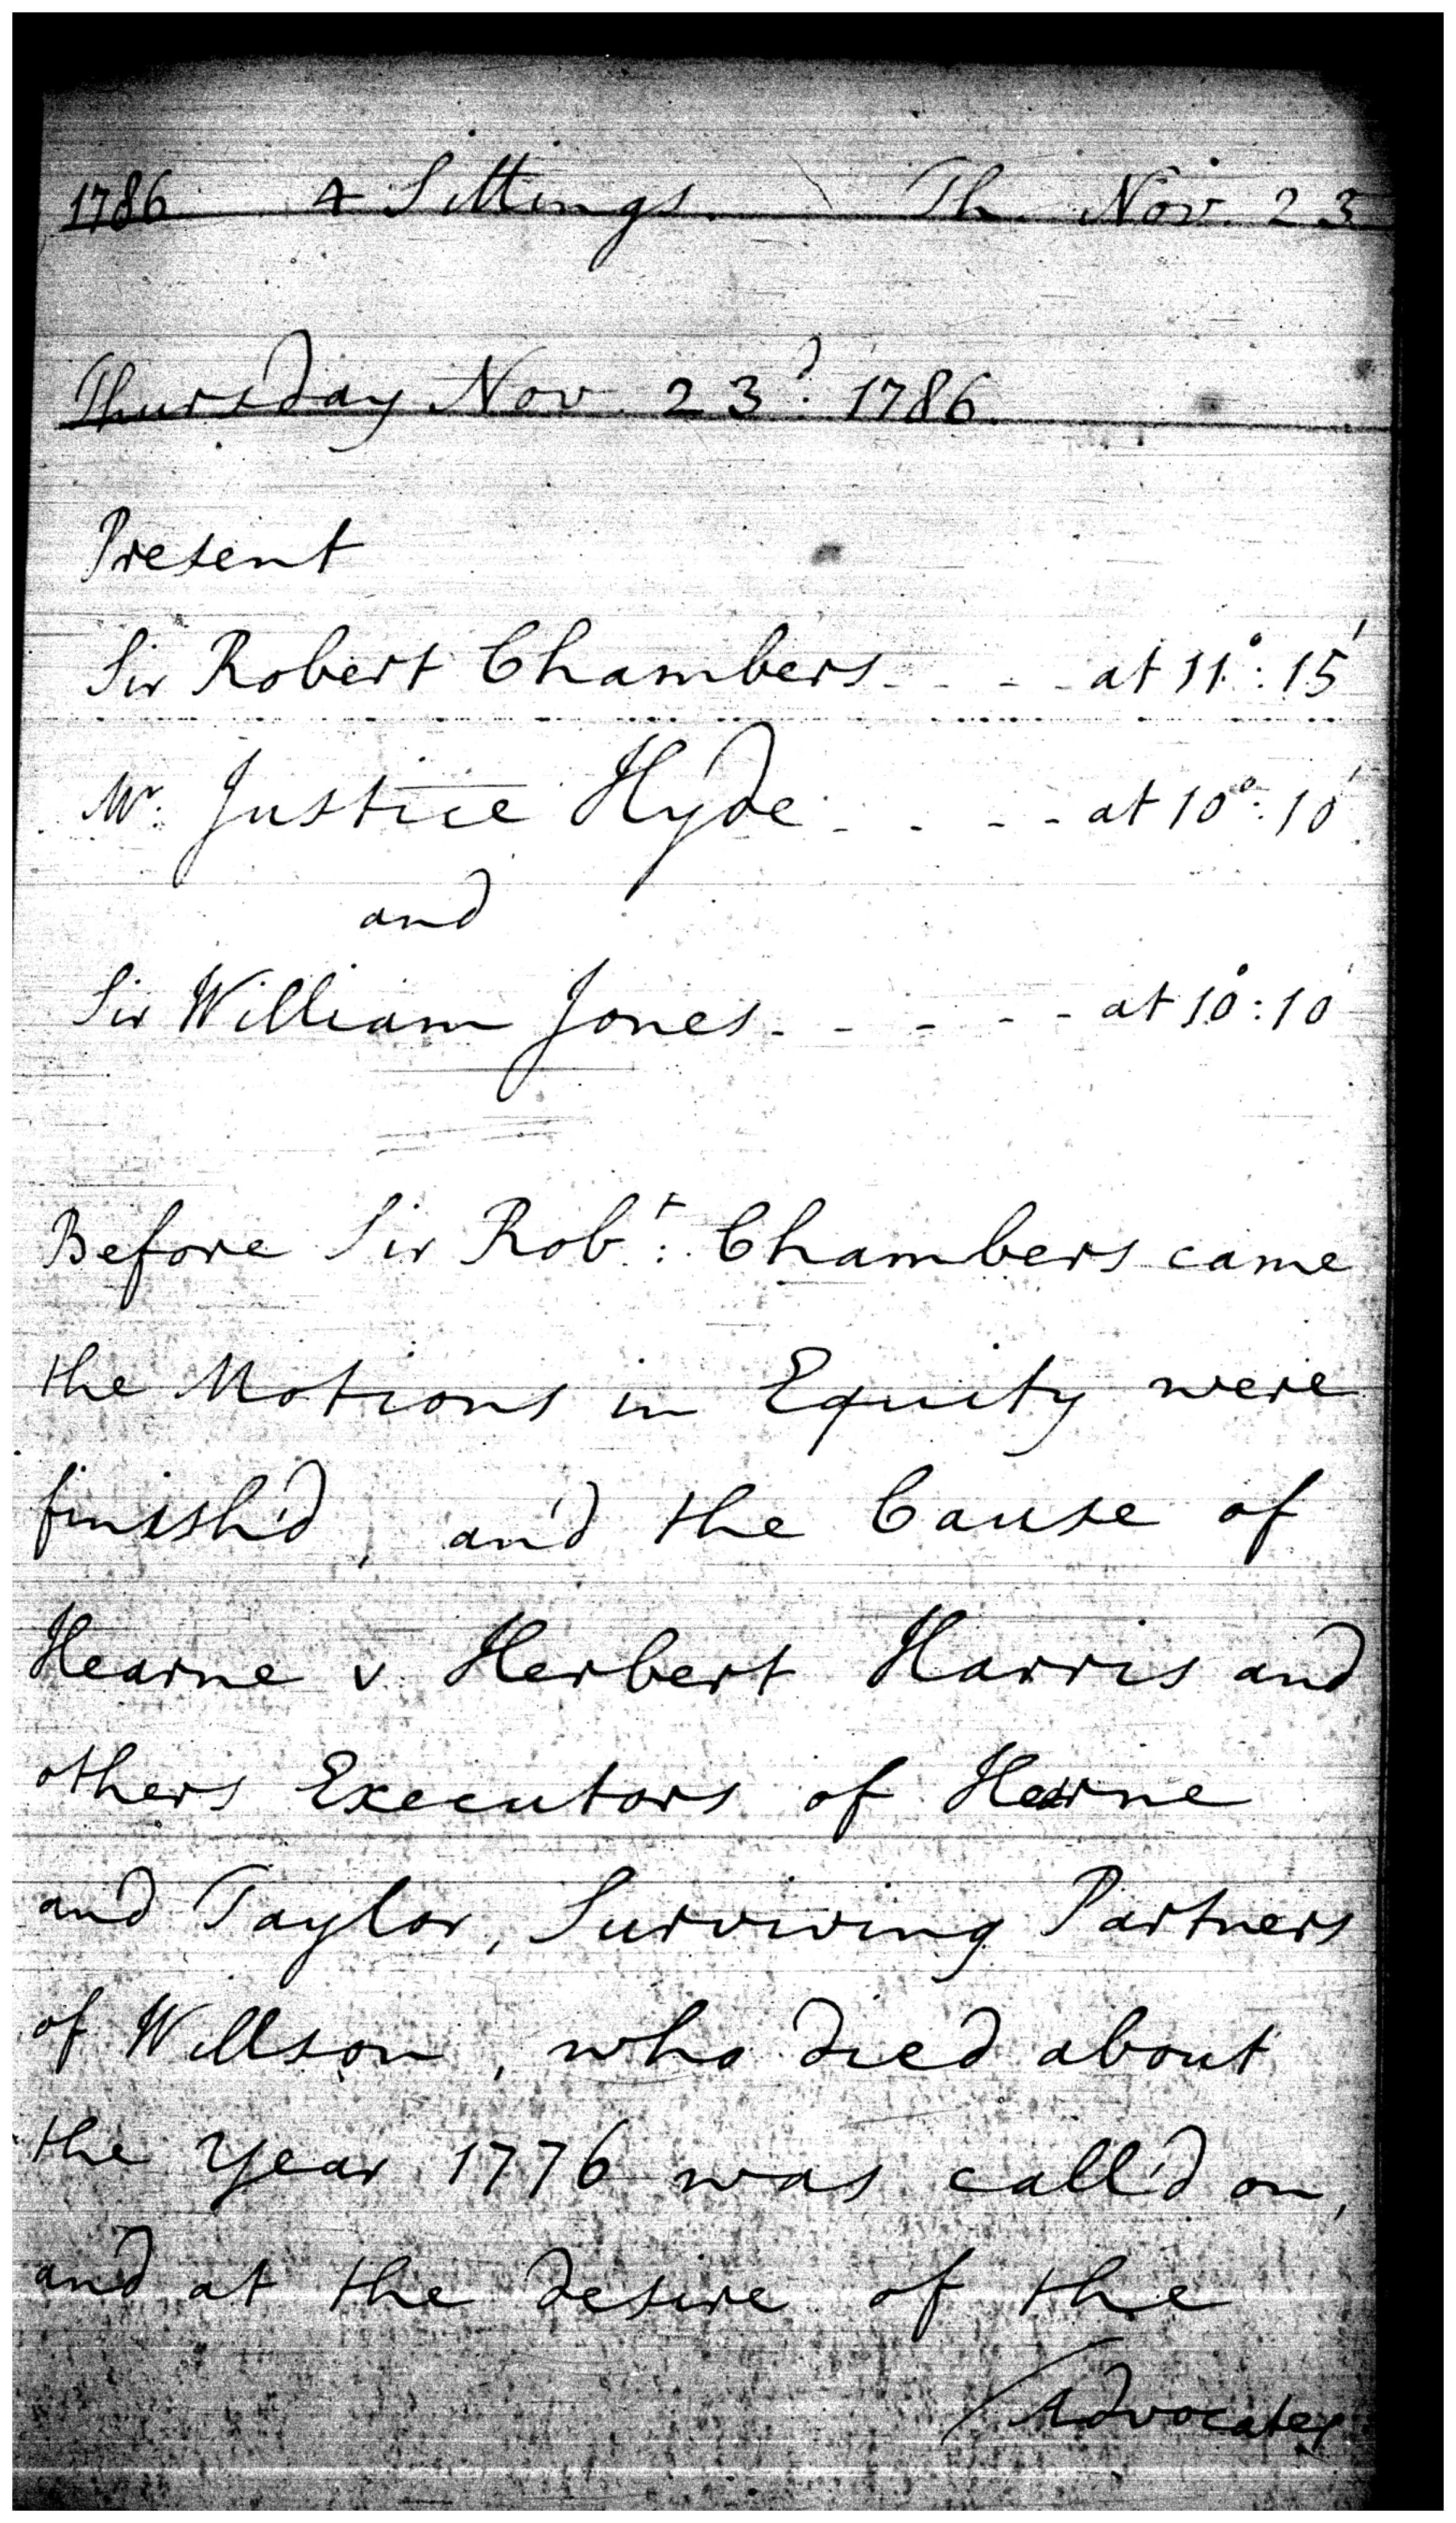 1786 4 Sittings. Th. Nov. 23
Thursday Nov. 23d. 1786.
Present
Sir Robert Chambers - - - - at 11°: 15'
Mr. Justice Hyde - - - - at 10°: 10'
and
Sir William Jones - - - - - at 10°: 10'
Before Sir Robt: Chambers came
the Motions in Equity were
finish'd, and the Cause of
Hearne v. Herbert Harris and
others Executors of Hearne
and Taylor, Surviving Partners
of Willson, who died about
the Year 1776 was call'd on,
and at the desire of the
/Advocates